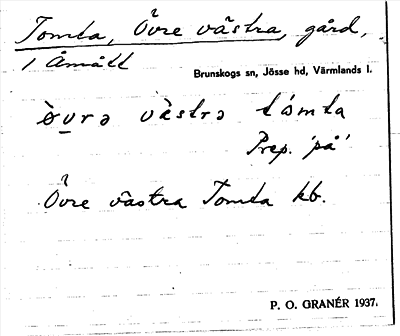 Tomta, Övre västra, gård,
i Åmått
Brunskogs sn, Jösse hd, Värmlands l.
ə̀vrə västrə tómta
Prep. 'på'
Övre västra Tomta kb.
P. O. GRANÉR 1937.